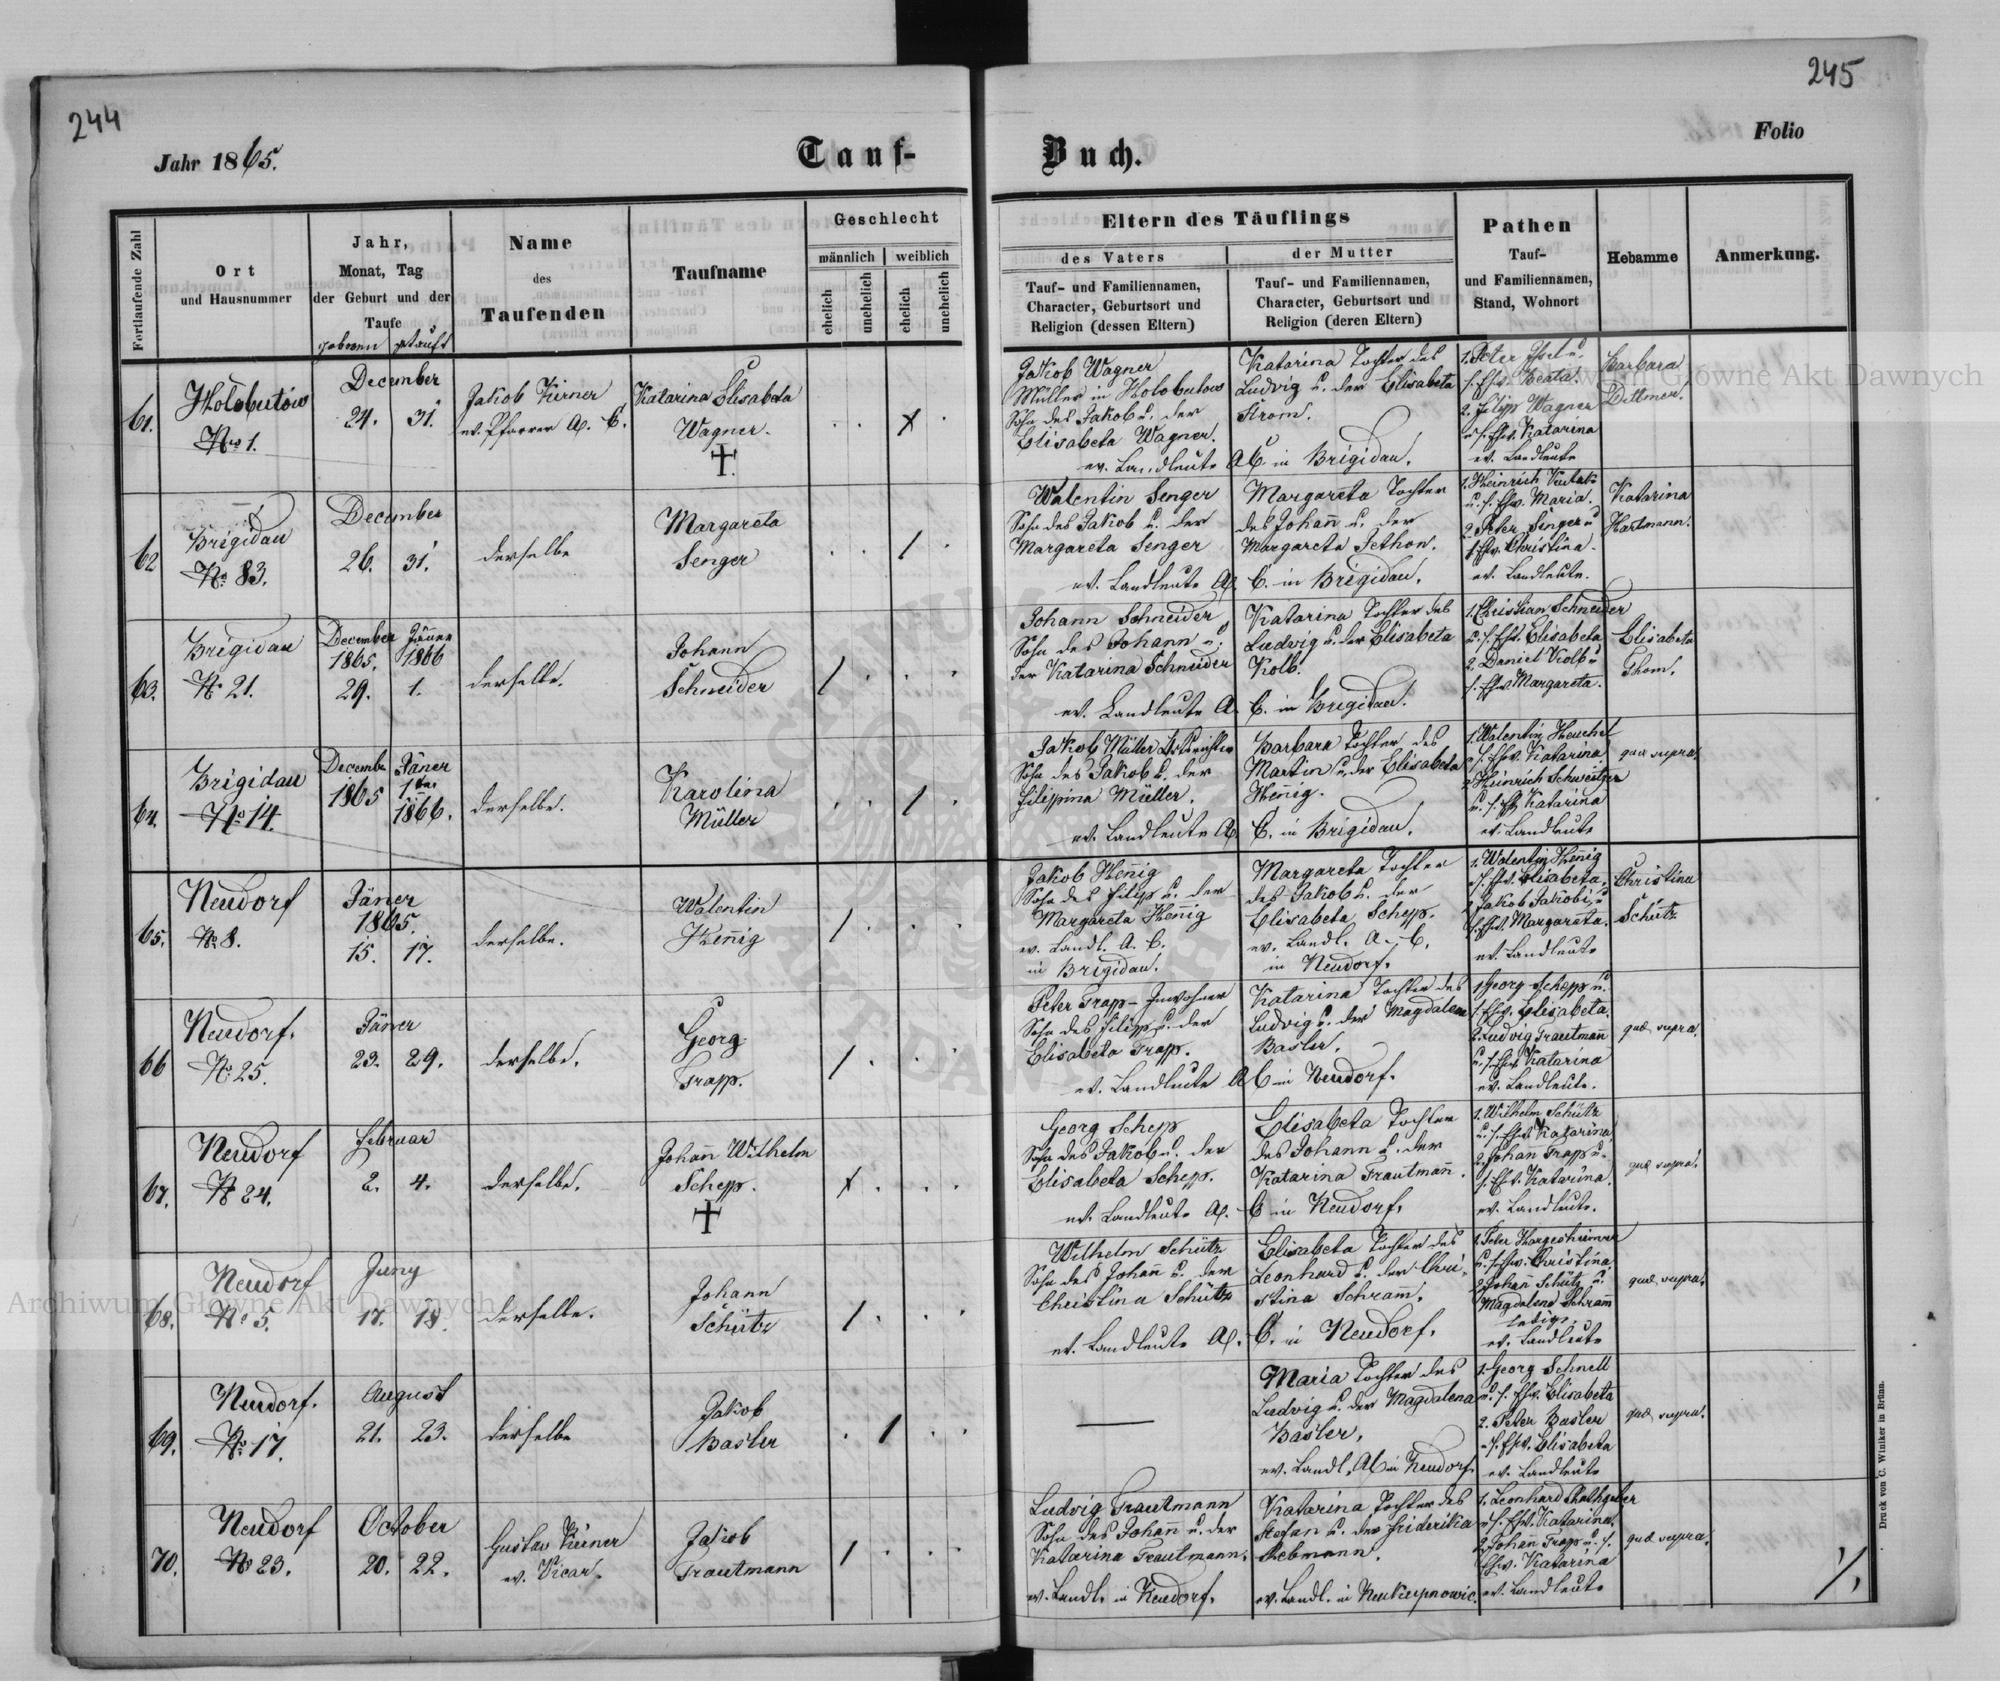 244
245
Jahr 1865.
Tauf-
Buch.
Folio
Fortlaufende Zahl
Ort
und Hausnummer
Jahr,
Monat, Tag
der Geburt und der
Taufe
geboren getauft
Name
des
Taufenden
Taufname
Geschlecht
männlich weiblich
ehelich unehelich ehelich unehelich
Eltern des Täuflings
des Vaters
Tauf- und Familiennamen,
Character, Geburtsort und
Religion (dessen Eltern)
der Mutter
Tauf- und Familiennamen,
Character, Geburtsort und
Religion (deren Eltern)
Pathen
Tauf-
und Familiennamen,
Stand, Wohnort
Hebamme
Anmerkung.
61.
Holobutów
No 1.
December
24. 31.
Jakob Kirner
ev. Pfarrer A. C.
Katarina Elisabeta
Wagner.
Jakob Wagner
Müller in Holobutow
Sohn des Jakob u. der
Elisabeta Wagner.
ev. Landleute A C. in Brigidau.
Katarina Tochter des
Ludvig u. der Elisabeta
Strom.
1. Peter
s. Ehw. Beata.
2. Filipp Wagner
u s. Ehw. Katarina
ev. Landleute
Barbara
Dittmer.
62
Brigidau
No 83.
December
26. 31.
derselbe
Margareta
Senger
Walentin Senger
Sohn des Jakob u. der
Margareta Senger
ev. Landleute A. C. in Brigidau.
Margareta Tochter
des Johann u. der
Margareta Sethon.
1. Heinrich
u. s. Ehw. Maria.
2. Peter Senger u
s. Ehw. Christina.
ev. Landleute.
Katarina
Hartmann.
63.
Brigidau
No 21.
December Jänner
1865. 1866
29. 1.
derselbe.
Johann
Schneider
Johann Schneider
Sohn des Johann u.
der Katarina Schneider
ev. Landleute A. C. in Brigidau.
Katarina Tochter des
Ludvig u. der Elisabeta
Kolb.
1. Christian Schneider
u. s. Ehw. Elisabeta
2. Daniel Kolb u
s. Ehw. Margareta.
Elisabeta
Thom.
64.
Brigidau
No 14.
Decembr Jäner
1865 1ten
1866.
derselbe.
Karolina
Müller
Jakob Müller Ortsrichter
Sohn des Jakob u. der
Filippina Müller.
ev. Landleute A. C. in Brigidau.
Barbara Tochter des
Martin u. der Elisabeta
Henig.
1. Walentin Heuchel
u s. Ehw. Katarina
2. Heinrich Schweitzer
u. s. Ehw Katarina
ev. Landleute
quae supra.
65.
Neudorf
No 8.
Jäner
1865.
15. 17.
derselbe.
Walentin
Henig
Jakob Henig
Sohn des Filip u. der
Margareta Henig
ev. Landl. A. C.
in Brigidau.
Margareta Tochter
des Jakob u. der
Elisabeta Schepp.
ev. Landl. A. C.
in Neudorf.
1. Walentin Henig
u s. Ehw. Elisabeta,
2 Jakob Jakobi, u
s. Ehw. Margareta.
ev. Landleute
Christina
Schütz
66
Neudorf.
No 25.
Jäner
23. 29.
derselbe.
Georg
Trapp.
Peter Trap- Inwohner
Sohn des Filipp u. der
Elisabeta Trapp.
ev. Landleute A C in Neudorf.
Katarina Tochter des
Ludvig u. der Magdalena
Basler.
1 Georg Schepp u.
s. Ehw. Elisabeta.
2. Ludvig Trautmann
u. s. Ehw Katarina
ev. Landleute.
quae supra.
67.
Neudorf
No 24.
Februar
2. 4.
derselbe.
Johann Wilhelm
Schepp.
Georg Schepp
Sohn des Jakob u. der
Elisabeta Schepp.
ev. Landleute A. C in Neudorf.
Elisabeta Tochter
des Johann u. der
Katarina Trautmann.
1. Wilhelm Schütz
u. s. Ehw. Katarina
2. Johan Trapp u.
s. Ehw. Katarina.
ev. Landleute.
quae supra.
68.
Neudorf
No 5.
Juny
17. 18.
derselbe.
Johann
Schütz
Wilhelm Schütz
Sohn des Johann u. der
Christina Schütz
ev. Landleute A. C. in Neudorf.
Elisabeta Tochter des
Leonhard u. der Chri-
stina Schram.
1. Peter Hargesheimer
u. s. Ehw. Christina.
2 Johann Schütz u.
Magdalena Schram
ledig.
ev. Landleute
quae supra.
69.
Neudorf.
No 17.
August
21. 23.
derselbe
Jakob
Basler
Maria Tochter des
Ludvig u. der Magdalena
Basler.
ev. Landl. A C in Neudorf
1. Georg Schnell
u. s. Ehw. Elisabeta
2. Peter Basler
u s. Ehw. Elisabeta
ev. Landleute
quae supra.
70.
Neudorf
No 23.
October
20. 22.
Gustav Kirner
ev. Vicar.
Jakob
Trautmann
Ludvig Trautmann
Sohn des Johann u. der
Katarina Trautmann.
ev. Landl. in Neudorf.
Katarina Tochter des
Stefan u. der Friderika
Rebmann.
ev. Landl. in Neukupnowic.
1. Leonhard Rathgeber
u s. Ehw. Katarina.
2. Johan Trapp u. s.
Ehw. Katarina
ev. Landleute
quae supra.
Druck von C. Winiker in Brünn.
Archiwum Główne Akt Dawnych
Archiwum Główne Akt Dawnych